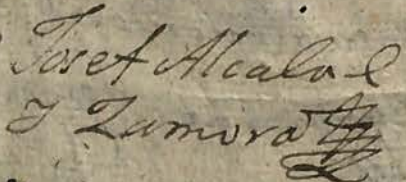 Josef Alcala
y Zamora